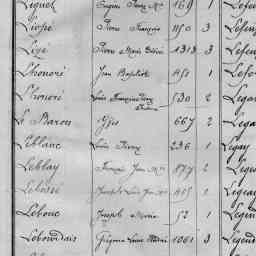 Liguel Eugène Pierre Mie 169 1 Lefeu
Liopé Pierre François 1150 3 Lefeu
Lizé Pierre Marie Désiré 1313 3 Lefeu
Lhonoré Jean Baptiste 451 1 Lefo
Lhonoré Louis François 530 2 Lega
Le Baron Yves 667 2 Lega
Leblanc Louis Pierre 236 1 Legay
Leblay François Jean Mie 877 2 Lege
Lebossé Joseph Louis Jean Mie 405 1 Legeay
Lebouc Joseph Marie 52 1 Legen
Lebourdais Grégoire Louis Marie 1061 3 Legend